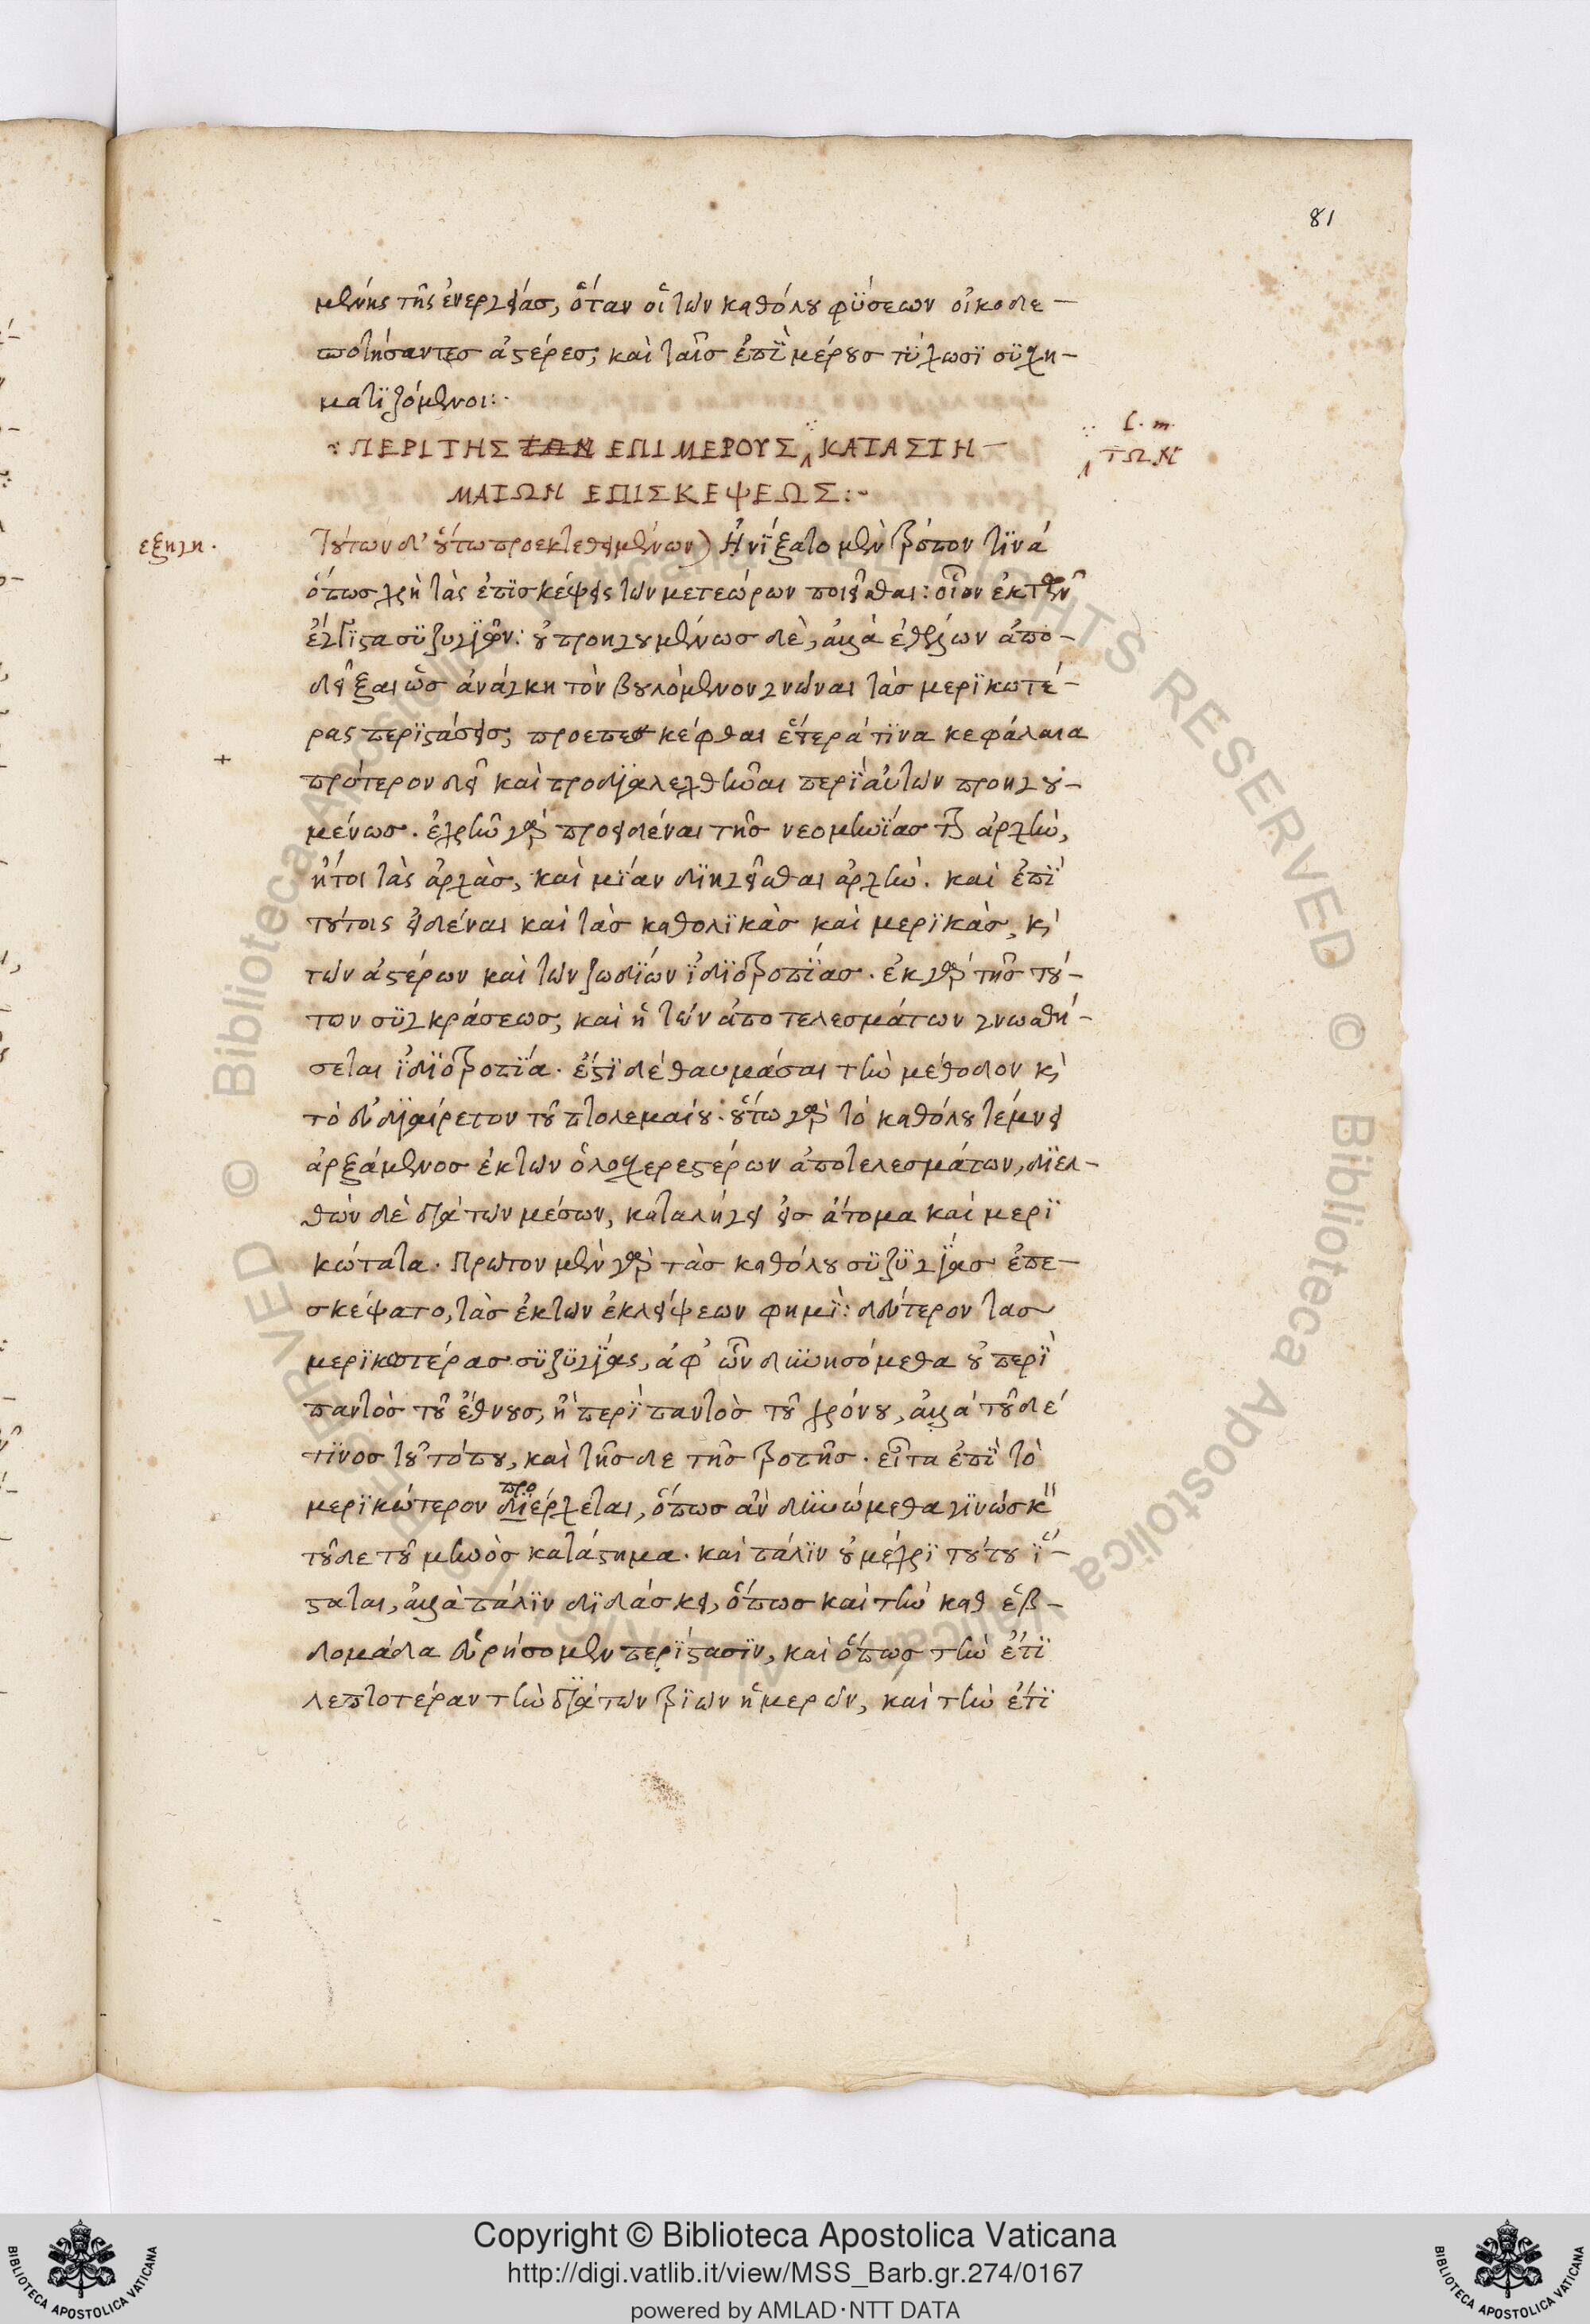 81
μένης τῆς ἐνεργείας, ὅταν οἱ τῶν καθόλου φύσεων οἰκοδε-
ποτήσαντες ἀστέρες, καὶ ταῖς ἐπὶ μέρους τύχωσι συσχη-
ματιζόμενοι:
ΠΕΡΙ ΤΗΣ ΤΩΝ ΕΠΙ ΜΕΡΟΥΣ ΚΑΤΑΣΤΗ-
ΤΩΝ
ΜΑΤΩΝ ΕΠΙΣΚΕΨΕΩΣ:
εξηγη.
Τούτων δ' οὕτω προεκτεθειμένων) Ἠνίξατο μὲν τρόπον τινά
ὅπως χρὴ τὰς ἐπισκέψεις τῶν μετεώρων ποιεῖσθαι: οἷον ἐκ τῶν
ἔγγιστα συζυγιῶν: οὐ προηγουμένως δὲ, ἀλλὰ ἀπο-
δεῖξαι ὡς ἀνάγκη τὸν βουλόμενον γνῶναι τὰς μερικωτέ-
ρας περιστάσεις, προεπεσκέφθαι ἕτερά τινα κεφάλαια
πρότερον δεῖ καὶ προδιαλεχθῆναι περὶ αὐτῶν προηγου-
μένως. ἐχρῆν γὰρ προειδέναι τῆς νεομηνίας τὴν ἀρχὴν,
ἤτοι τὰς ἀρχὰς, καὶ μίαν διηγεῖσθαι ἀρχὴν. καὶ ἐπὶ
τούτοις εἰδέναι καὶ τὰς καθολικὰς καὶ μερικὰς, καὶ
τῶν ἀστέρων καὶ τῶν ζωδίων ἰδιοτροπίας. ἐκ γὰρ τῆς τού-
των συγκράσεως, καὶ ἡ τῶν ἀποτελεσμάτων γνωσθή-
σεται ἰδιοτροπία. ἔστι δὲ θαυμάσαι τὴν μέθοδον καὶ
τὸ εὐδιαίρετον τοῦ πτολεμαίου. οὕτω γὰρ τὸ καθόλου τέμνει
ἀρξάμενος ἐκ τῶν ὁλοσχερεστέρων ἀποτελεσμάτων, διελ-
θὼν δὲ διὰ τῶν μέσων, καταλήγει εἰς ἄτομα καὶ μερι
κώτατα. Πρῶτον μὲν γὰρ τὰς καθόλου συζυγίας ἐπε-
σκέψατο, τὰς ἐκ τῶν ἐκλείψεων φημὶ: δεύτερον τας
μερικωτέρας συζυγίας, ἀφ' ὧν δυνησόμεθα οὐ περὶ
παντὸς τοῦ ἔθνους, ἢ περὶ παντὸς τοῦ χρόνου, ἀλλὰ τοῦδέ
τινος τοῦ τόπου, καὶ τῆσδε τῆς τροπῆς. εἶτα ἐπὶ τὸ
προ
μερικώτερον διέρχεται, ὅπως ἂν δυνώμεθα γινώσκειν
τοῦδε τοῦ μηνὸς κατάστημα. καὶ πάλιν οὐ μέχρι τούτου ἵ-
σταται, ἀλλὰ πάλιν διδάσκει, ὅπως καὶ τὴν καθ ἑβ-
δομάδα εὑρήσομεν περίστασιν, καὶ ὅπως τὴν ἔτι
λεπτοτέραν τὴν διὰ τῶν τριῶν ἡμερῶν, καὶ τὴν ἔτι
© Biblioteca Apostolica Vaticana ALL RIGHTS RESERVED
© Biblioteca Apostolica Vaticana ALL RIGHTS RESERVED
Copyright © Biblioteca Apostolica Vaticana
http://digi.vatlib.it/view/MSS_Barb.gr.274/0167
powered by AMLAD·NTT DATA
BIBLIOTECA APOSTOLICA VATICANA
BIBLIOTECA APOSTOLICA VATICANA